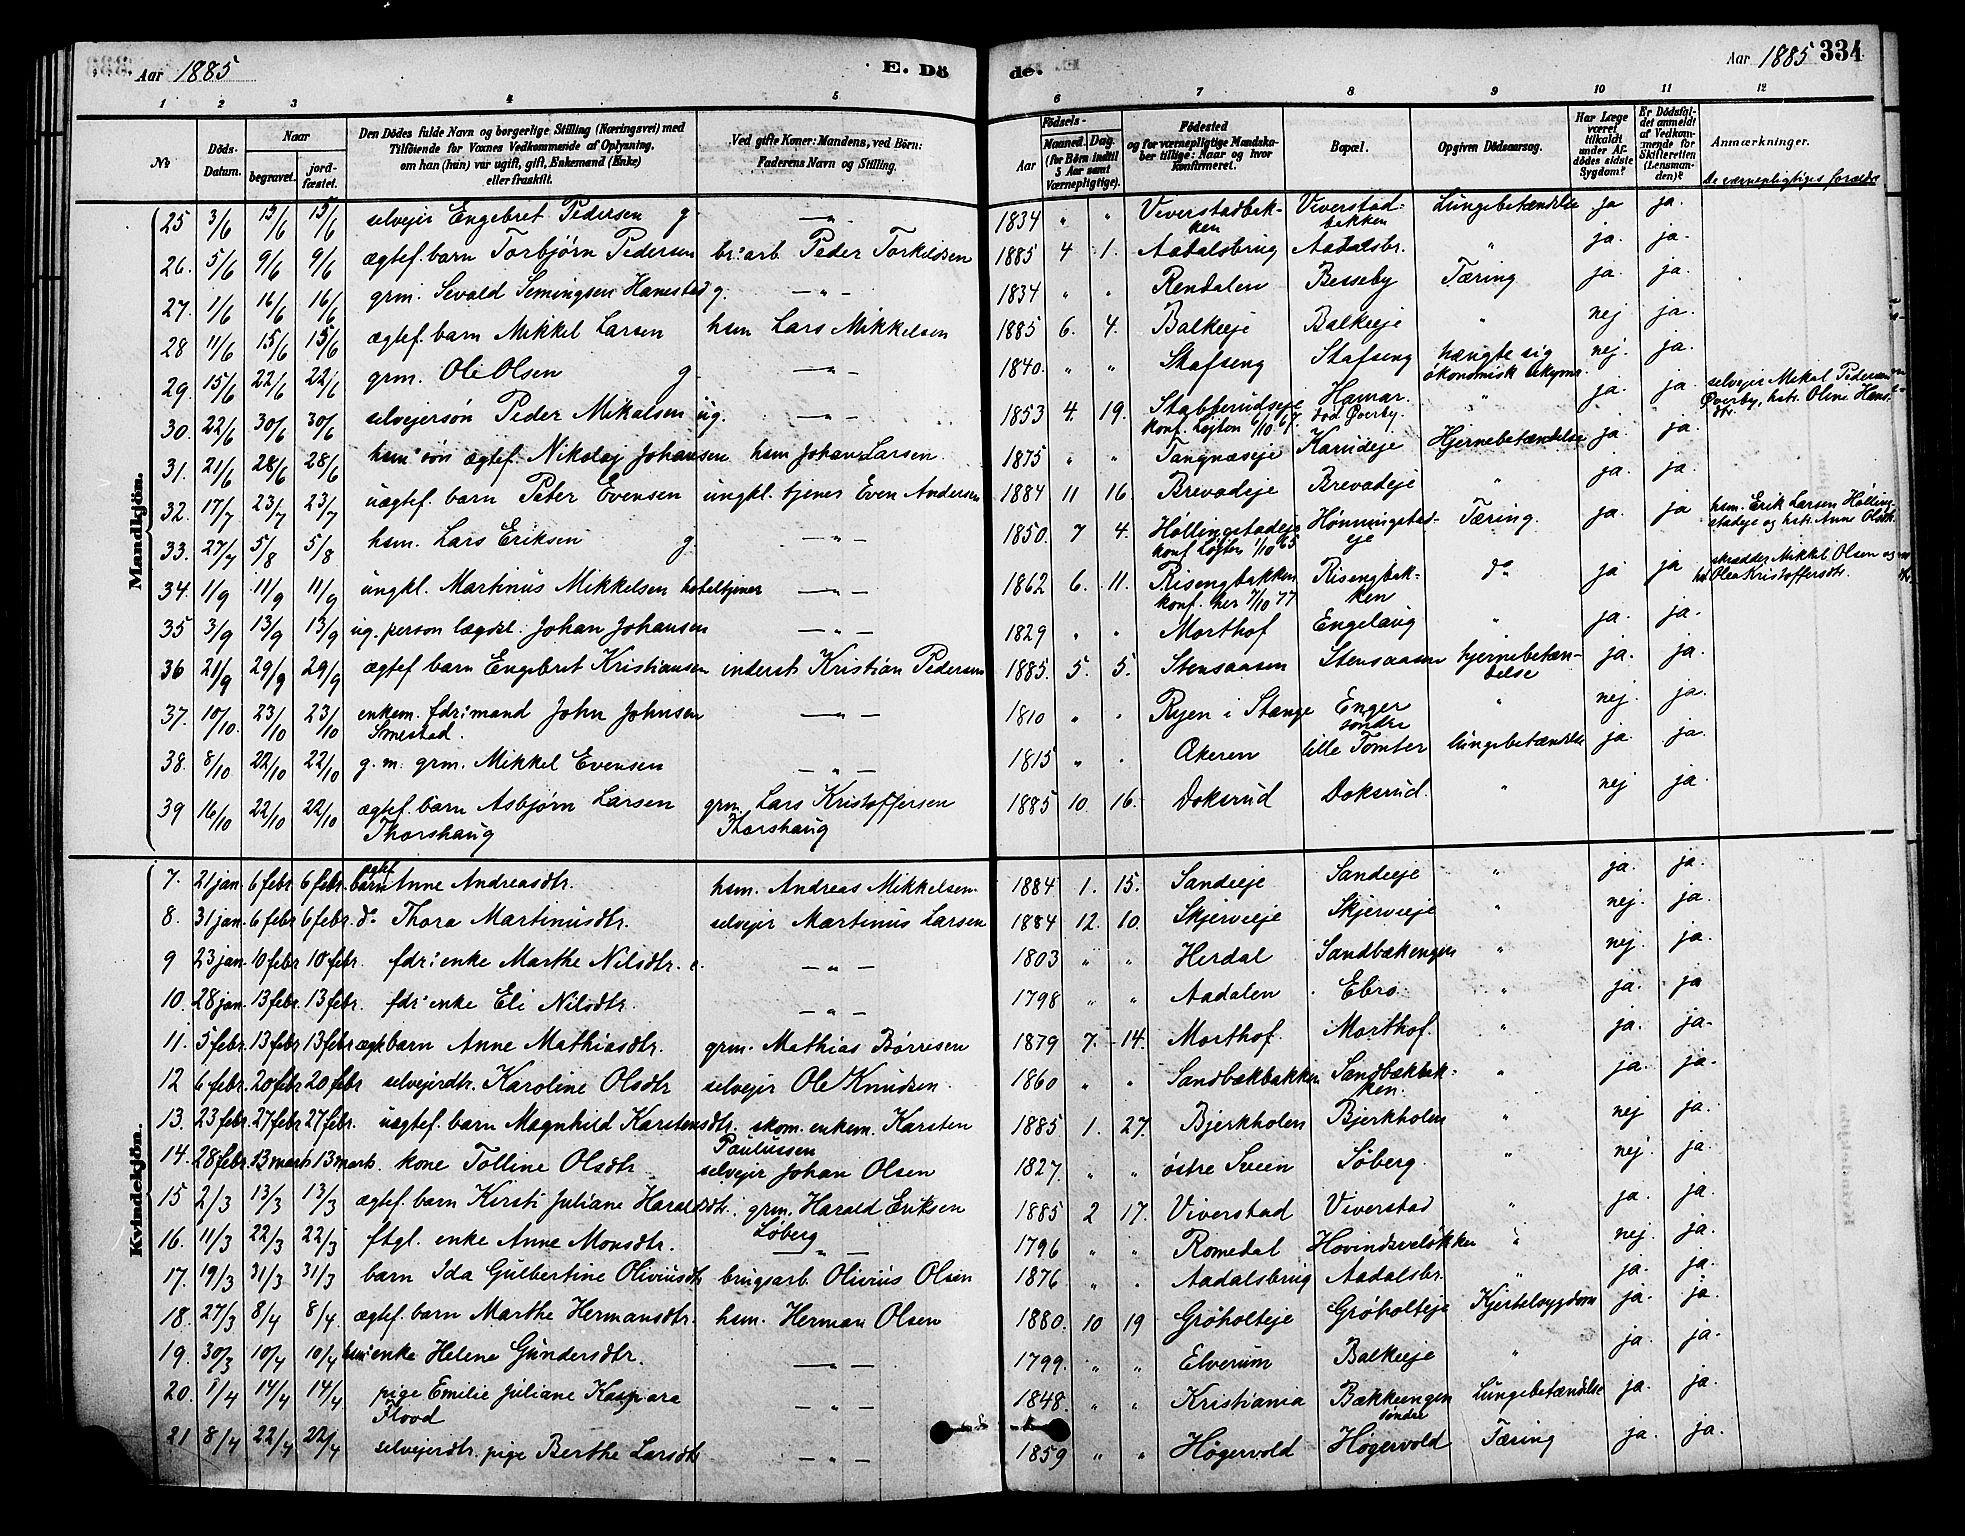 Aar 1885
E. Dö
de.
Aar 1885 334
1 2 3 4 5 6 7 8 9 10 11 12
No Döds-Datum. Naar begravet. jord-fæstet. Den Dödes fulde Navn og borgerlige Stilling (Næringsvei) med Tilföiende for Voxnes Vedkommende af Oplysning, om han (hun) var ugift, gift, Enkemand (Enke) eller fraskilt. Ved gifte Koner: Mandens, ved Börn: Faderens Navn og Stilling. Aar Födsels- Maaned. Dag. (for Börn indtil 5 Aar samt Værnepligtige). Födested og for værnepligtige Mandskaber tillige: Naar og hvor Konfirmeret. Bopæl. Opgiven Dödsaarsag. Har Læge været tilkaldt under Afdödes sidste Sygdom? Er Dödsfaldet anmeldt af Vedkommende for Skifteretten (Lensmanden)? Anmærkninger. De værnepligtiges foræld
Mandkjön.
25 3/6 15/6 15/6 selvejer Engebret Pedersen g. — " — 1834 " " Viverstadbakken Viverstadbakken Lungebetændelse ja ja.
26. 5/6 9/6 9/6 ægtef. barn Torbjørn Pedersen br: arb. Peder Torkildsen 1885 4 1. Aadalsbrug Aadalsbr. " ja. ja.
27. 1/6 16/6 16/6 grm. Sevald Semingsen Hanestad g. — " — 1834 " " Rendalen Besseby Tæring ja. ja.
28 11/6 15/6 15/6 ægtef. barn Mikkel Larsen hsm Lars Mikkelsen 1885 6. 4. Balkeeje Balkeeje " nej ja.
29. 15/6 22/6 22/6 grm. Ole Olsen g. — " — 1840. " " Stafseng Stafseng hængte sig økonomisk bekymr. nej. ja.
30. 22/6 30/6 30/6 selvejersøn Peder Mikalsen ug. — " — 1853 4. 19. Stabberudseje konf. Løjten 6/10 67. Hamar. død Øverby. " ja. ja selvejer Mikal Pedersen Øverby, hstr. Oline Hansdtr.
31. 21/6 28/6 28/6 hsm' søn ægtef. Nikolaj Johansen hsm Johan Larsen. 1875 " " Tangnæseje Karudeje Hjernebetændelse ja. ja.
32. 17/7 23/7 23/7 uægtef. barn Peter Evensen ungkl. tjener Even Andersen 1884 11 16. Brevadeje Brevadeje " ja. ja.
33. 27/7 5/8 5/8 hsm. Lars Eriksen g. — " — 1850. 7 4. Høllingstadeje konf. Løjten 1/10 65 Hønningstadeje Tæring. ja. ja hsm. Erik Larsen Høllingstadeje og hstr. Anne Olsdtr.
34. 1/9 11/9 11/9 ungkl. Martinus Mikkelsen hoteltjener — " — 1862 6. 11. Risengbakken konf. her 7/10 77 Risengbakken do ja ja skrædder Mikkel Olsen og h. Olea Kristoffersdtr.
35 3/9 13/9 13/9 ug. person lægdsl. Johan Johansen — " — 1829 " " Morthof Engelaug " ja. ja.
36 21/9 29/9 29/9 ægtef. barn Engebret Kristiansen inderst Kristian Pedersen 1885. 5. 5. Stensaasen Stensaasen hjernebetændelse ja. ja.
37. 10/10. 23/10 23/10 enkem. fdr: mand John Johnsen Smestad. — " — 1810 " " Ryen i Stange Enger søndre " nej. ja.
38. 8/10 22/10 22/10 g. m. grm. Mikkel Evensen — " — 1815 " " Akeren lille Tomter lungebetændelse ja. ja.
39 16/10 22/10 22/10 ægtef. barn Asbjørn Larsen Thorshaug grm. Lars Kristoffersen Thorshaug 1885 10. 16. Doksrud Doksrud. " nej ja.
Kvindekjön.
7. 21 jan. 6 febr. 6 febr. ægtef. barn Anne Andreasdtr. hsm. Andreas Mikkelsen 1884 1. 15. Sandeeje Sandeeje " ja. ja.
8. 31 jan. 6 febr. 6 febr. do Thora Martinusdtr. selvejer Martinus Larsen 1884 12. 10. Skjerveeje Skjerveeje " nej. ja.
9 23 jan. 10 febr 10 febr. fdr: enke Marthe Nilsdtr. — " — 1803 " " Herdal Sandbækengen " nej. ja.
10. 28 jan. 13 febr. 13 febr. fdr: enke Eli Nilsdtr. — " — 1798 " " Aadalen Ebro. " ja. ja
11. 5 febr. 13 febr. 13 febr. ægt. barn Anne Mathiasdtr. grm. Mathias Børrisen 1879 7. 14. Morthof. Morthof. " ja. ja.
12 6 febr. 20 febr 20 febr selvejerdtr. Karoline Olsdtr selvejer Ole Knudsen. 1860 " " Sandbækbakken Sandbækbakken. " ja. ja.
13. 23 febr. 27 febr 27 febr. uægtef. barn Magnhild Karstensdtr. skom. enkem. Karsten Paulussen 1885 1. 27. Bjerkholen Bjerkholen " nej ja.
14. 28 febr. 13 marts 13 marts. kone Tolline Olsdtr. selvejer Johan Olsen 1827. " " østre Sveen Søberg. " nej. ja.
15 2/3 13/3 13/3 ægtef. barn Kirsti Juliane Haraldsdtr. grm. Harald Eriksen Løberg 1885 2 17. Viverstad Viverstad " ja. ja.
16. 11/3 22/3 22/3 ftgl. enke Anne Monsdtr. — " — 1796 " " Romedal Hovindsveløkken " nej. ja.
17. 19/3 31/3 31/3 barn Ida Gulbertine Oliviusdtr brugsarb. Olivius Olsen 1876 " " Aadalsbrug Aadalsbr. " ja. ja.
18. 27/3 8/4 8/4. ægtef. barn Marthe Hermansdtr. hsm. Herman Olsen 1880. 10 19 Grøholteje Grøholteje Kjertelsygdom ja. ja.
19. 30/3 10/4 10/4 hsm: enke Helene Gundersdtr. — " — 1799. " " Elverum Balkeeje " ja. ja.
20. 1/4 14/4 14/4 pige Emilie Juliane Kaspara Flood — " — 1848. " " Kristiania Bækkeengen søndre Lungebetændelse ja. ja.
21 8/4 22/4 22/4 selvejerdtr. pige Berthe Larsdtr — " — 1859 " " Høgervold Høgervold Tæring ja. ja.